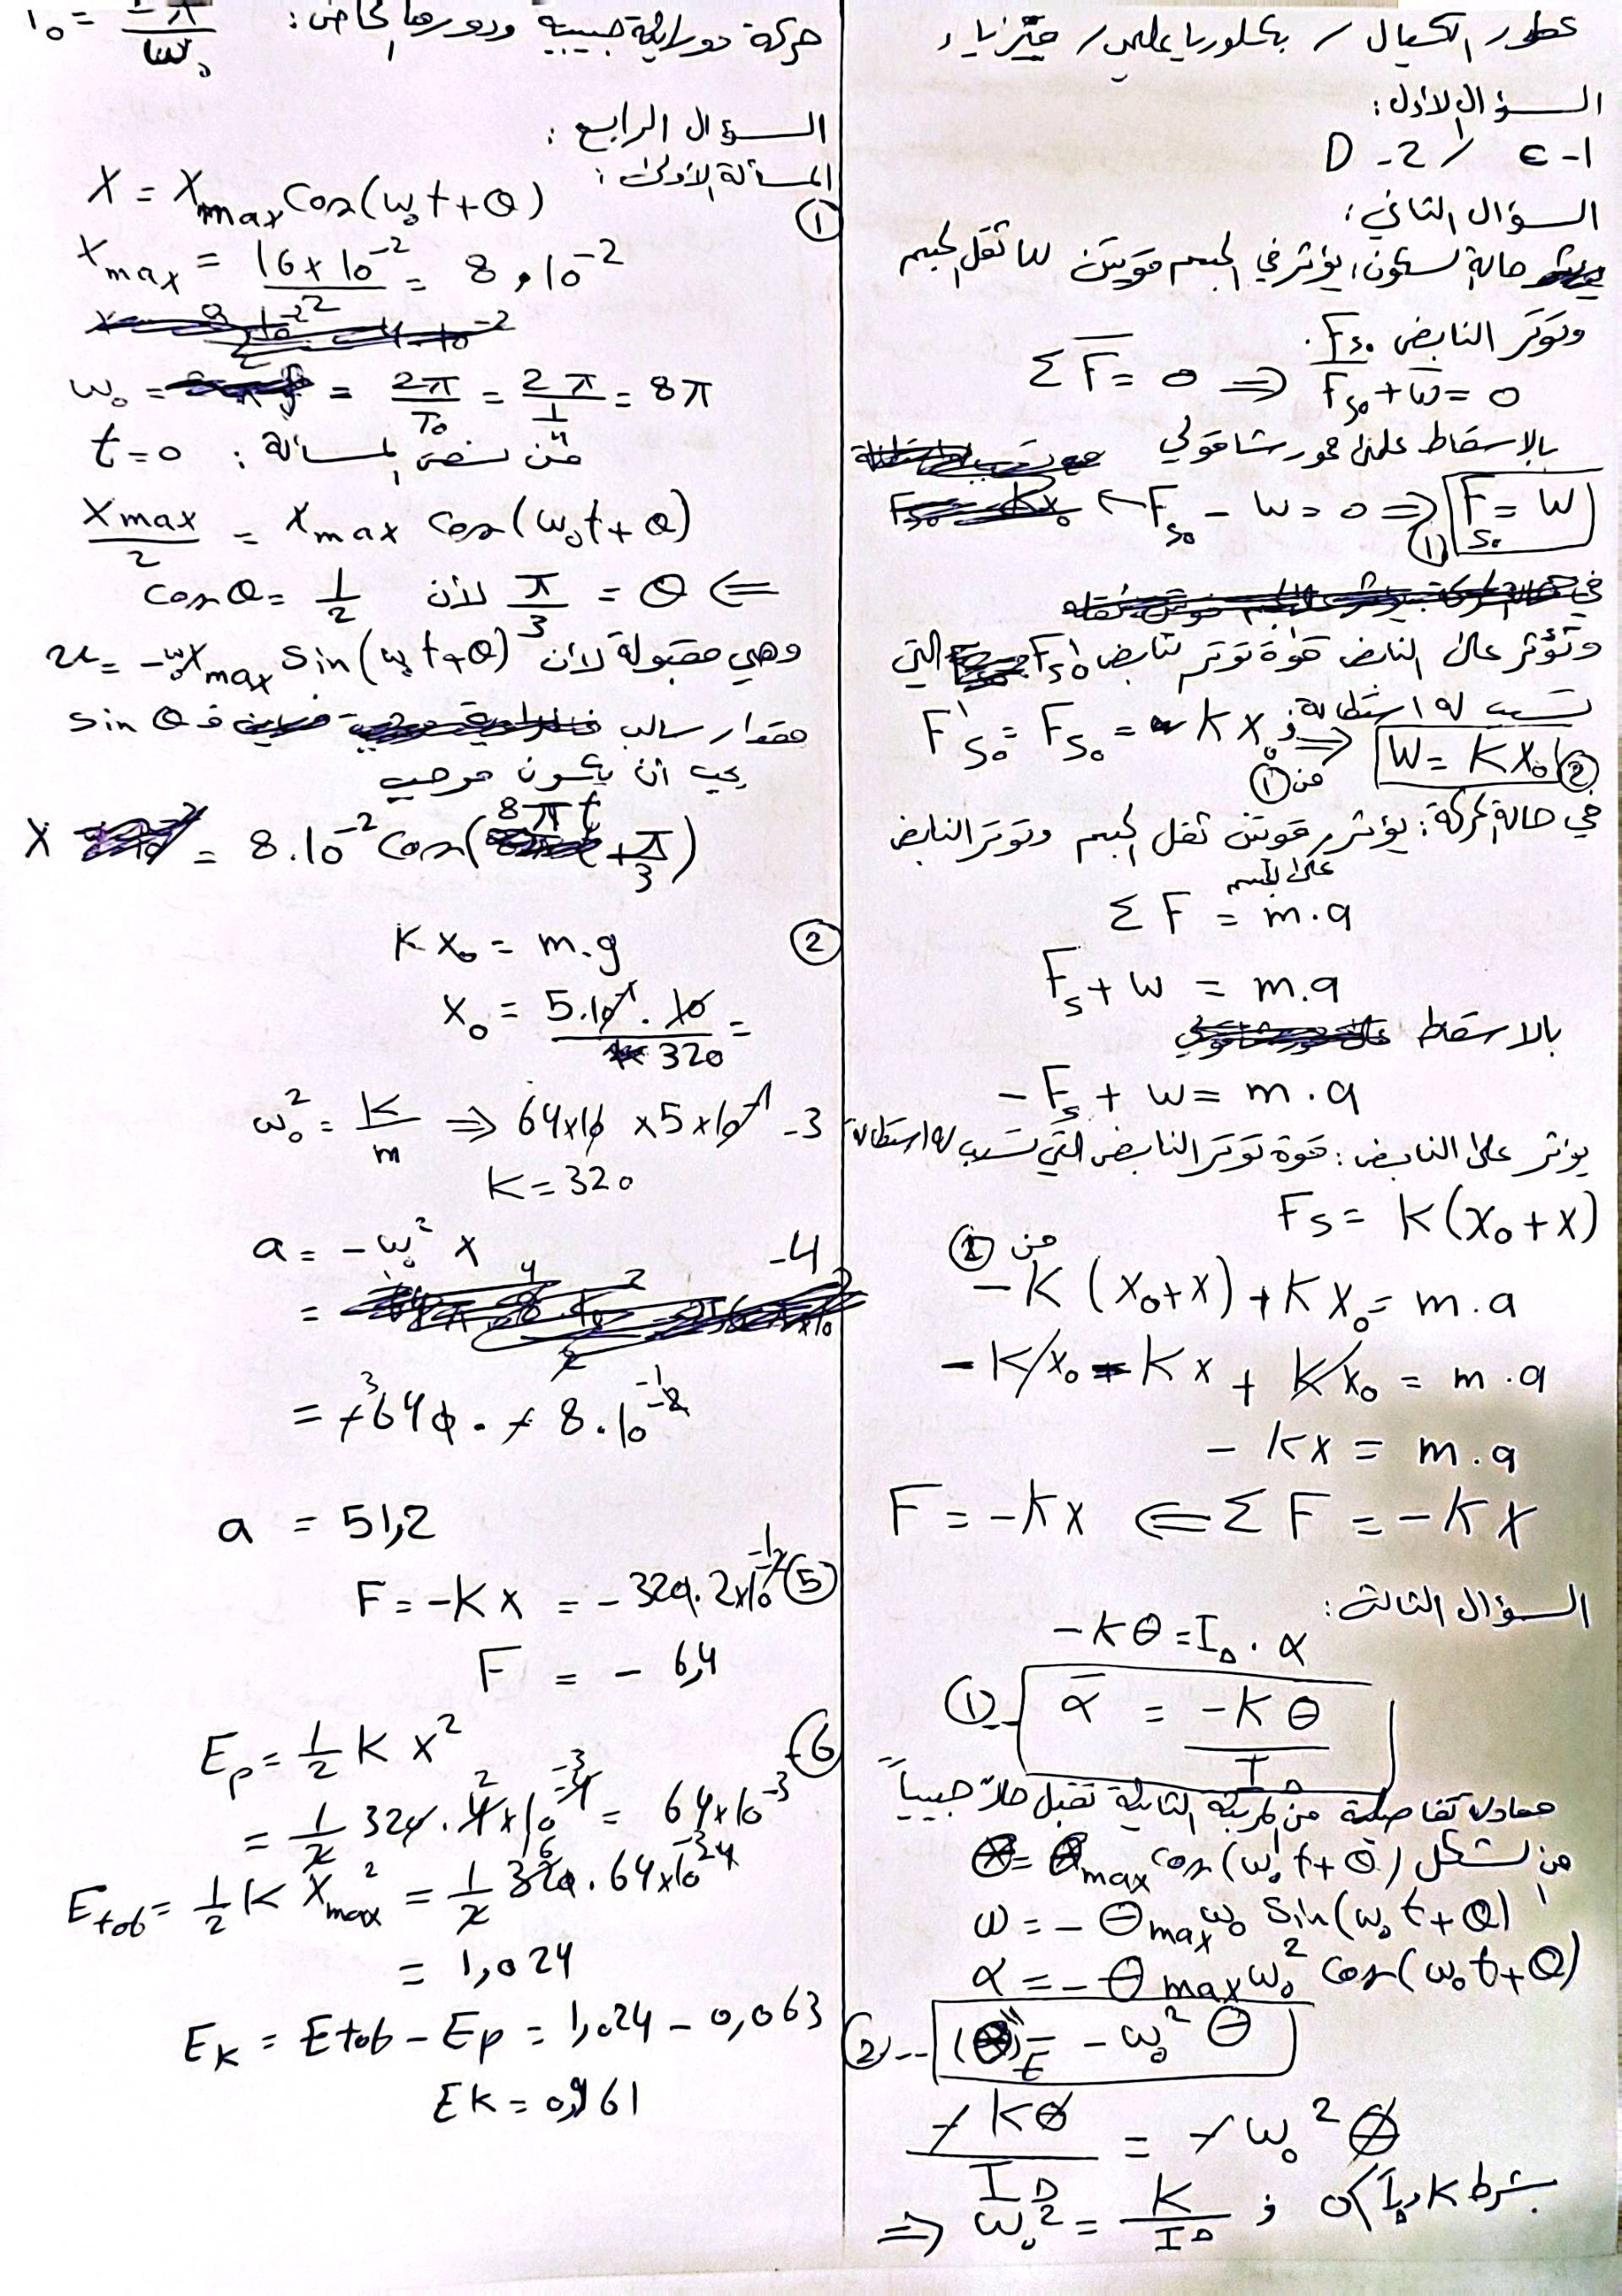 عطور الكيال / بكلوريا علمي / فيزياء
السؤال الأول:
1- c / 2- D
السؤال الثاني:
حالة السكون: يؤثر في الجسم قوتين هما ثقل الجسم
وتوتر النابض Fs₀.
ΣF̅ = 0 ⇒ F̅s₀ + w̅ = 0
بالاسقاط على محور شاقولي
-Fs₀ - W = 0 ⇒ Fs₀ = W (1)
وتؤثر على النابض قوة توتر نابض F's₀ التي
تسبب له استطالة x₀:
F's₀ = Fs₀ = K x₀ ⇒ من (1) W = K x₀ (2)
في حالة الحركة: يؤثر قوتين ثقل الجسم وتوتر النابض
على الجسم
Σ F = m.a
Fs + W = m.a
بالاسقاط
- Fs + W = m.a
يؤثر على النابض: قوة توتر النابض التي تسبب له استطالة
Fs = K(x₀+x)
من (2)
-K (x₀+x) + K x₀ = m.a
-K x₀ - K x + K x₀ = m.a
- Kx = m.a
F = -Kx ⇐ Σ F = -Kx
السؤال الثالث:
-kθ = I∆ . α
(1)-- α̅ = -Kθ / I∆
معادلة تفاضلية من المرتبة الثانية تقبل حلاً جيبياً
من الشكل θ = θmax cos(ω₀t+φ)
ω = -θmax ω₀ sin(ω₀t+φ)
α = -θmax ω₀² cos(ω₀t+φ)
(2)-- (θ)''t = -ω₀² θ
-Kθ / I∆ = -ω₀² θ
بشرط K و I∆ > 0
⇒ ω₀² = K / I∆
حركة دورانية جيبية ودورها الخاص: T₀ = 2π / ω₀
السؤال الرابع:
المسألة الأولى:
(1) X = Xmax cos(ω₀t+φ)
Xmax = 16×10⁻² / 2 = 8.10⁻²
ω₀ = 2π / T₀ = 2π / ¼ = 8π
من نص المسألة: t=0
Xmax / 2 = Xmax cos(ω₀t+φ)
⇐ φ = π/3 لأن cosφ = 1/2
وهي مقبولة لأن v = -ω₀Xmax sin(ω₀t+φ)
مقدار سالب فـ sin φ
يجب أن يكون موجب
X = 8.10⁻² cos(8πt + π/3)
(2) K x₀ = m.g
x₀ = 5.10⁻¹ . 10 / 320 =
3- ω₀² = K/m ⇒ 64×10 × 5×10⁻¹
K = 320
4- a = -ω₀² x
= -640 . -8.10⁻²
a = 51,2
(5) F = -Kx = -320. 2×10⁻²
F = - 6,4
6- Ep = ½ K x²
= ½ 320 . 4×10⁻⁴ = 64×10⁻³
Etot = ½ K Xmax² = ½ 320 . 64×10⁻⁴
= 1,024
EK = Etot - Ep = 1,024 - 0,063
EK = 0,961